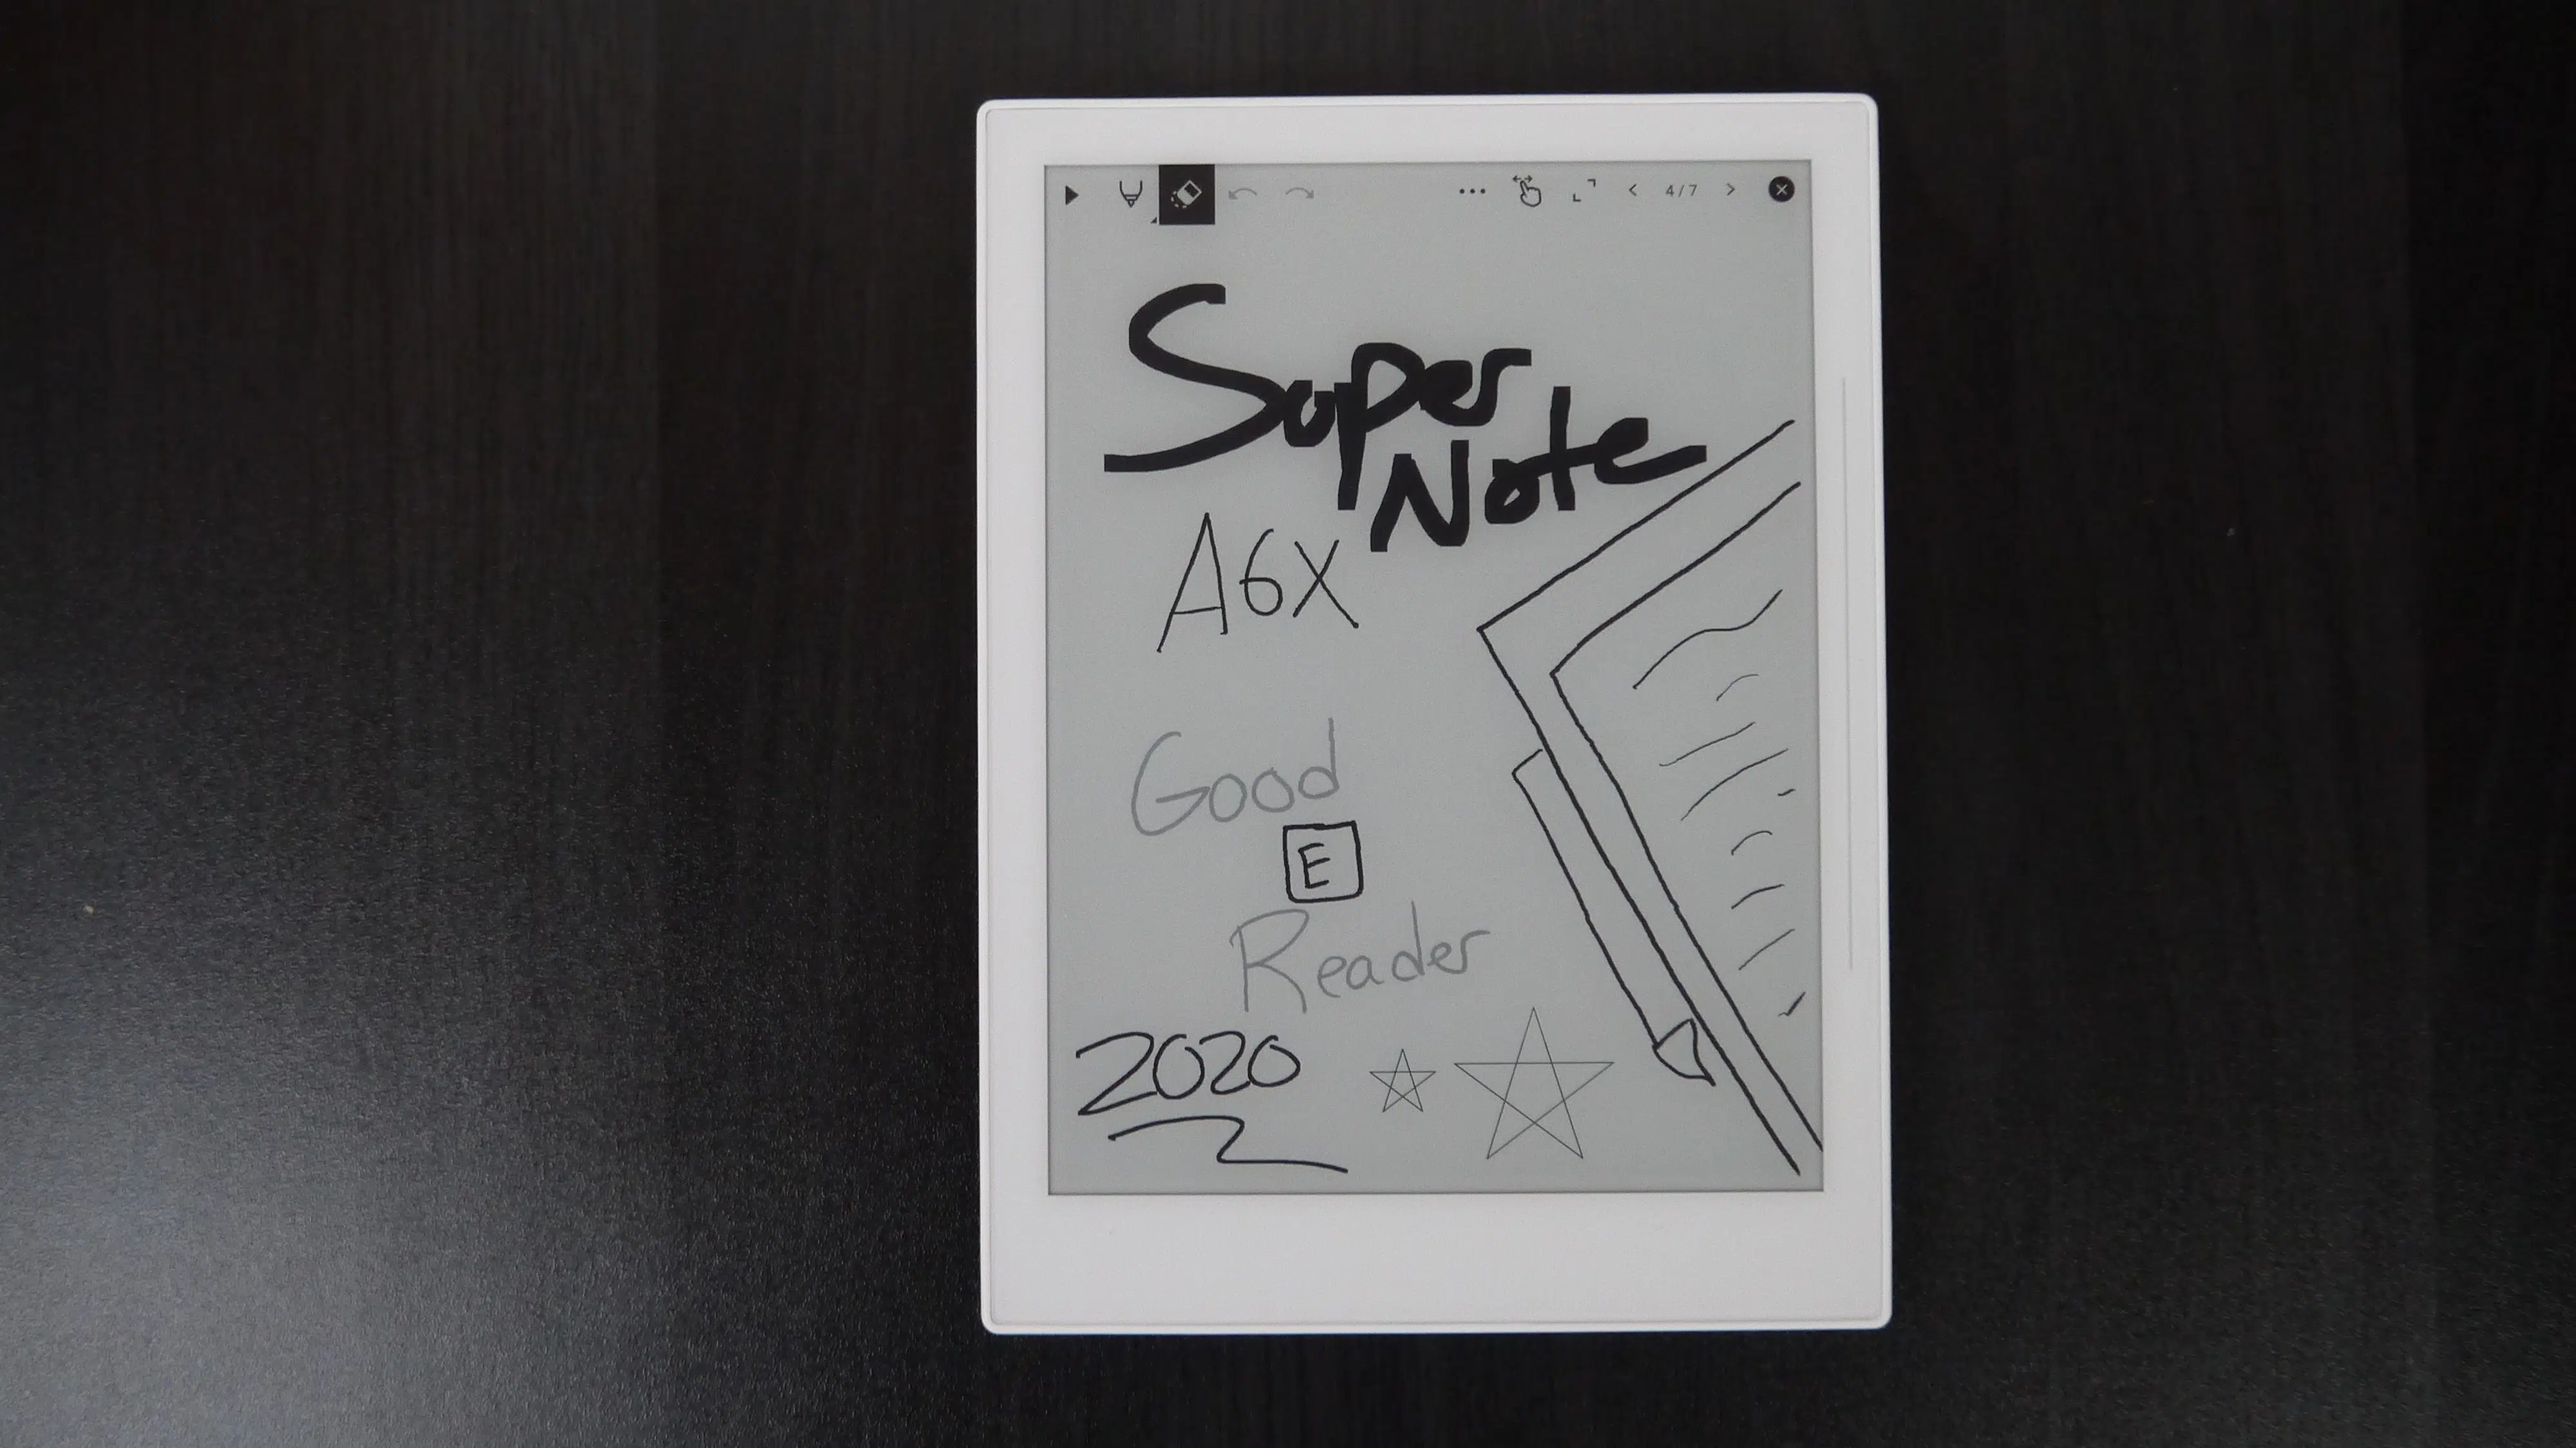 4/7
Super
Note
A6X
Good
E
Reader
2020